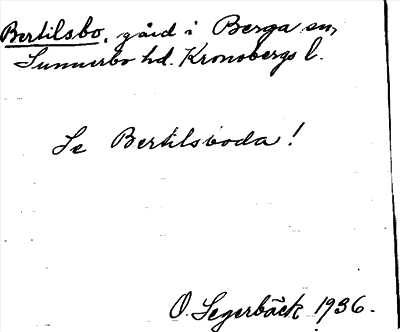 Bertilsbo, gård i Berga sn,
Sunnerbo hd. Kronobergs l.
Se Bertilsboda!
O. Segerbäck 1936.